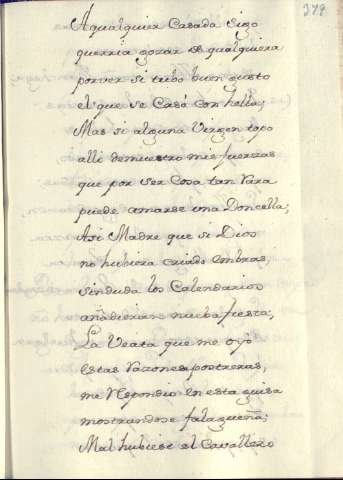 379
A qualquier Casada sigo
querria gozar de qualquiera
por ver si tubo buen gusto
el que se Casó con hella;
Mas si alguna Virgen topo
alli demuestro mis fuerzas
que por ser Cosa tan rara
puede amarse una Doncella;
Asi Madre que si Dios
no hubiera criado embras
sinduda los Calendarios
añadieran nueba fiesta;
La Veata que me oyó
estas razones postreras,
me respondio en esta guisa
mostrandose falagueña;
Mal hubiese el Cavallero